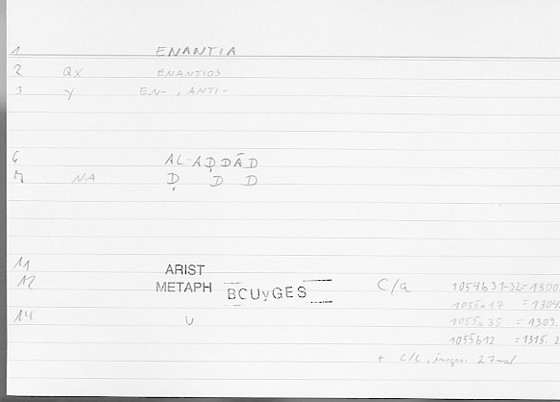 1 ENANTIA
2 QX ENANTIOS
3 Y EN- , ANTI-
6 AL-AḌDĀD
7 NA Ḍ D D
11 ARIST
12 METAPH BOUyGES C/a 1054b31-32=1300
1055a17 =1304.
14 U 1055a35 =1309.
1055b12 =1315.2
+ C/C, insges. 27mal